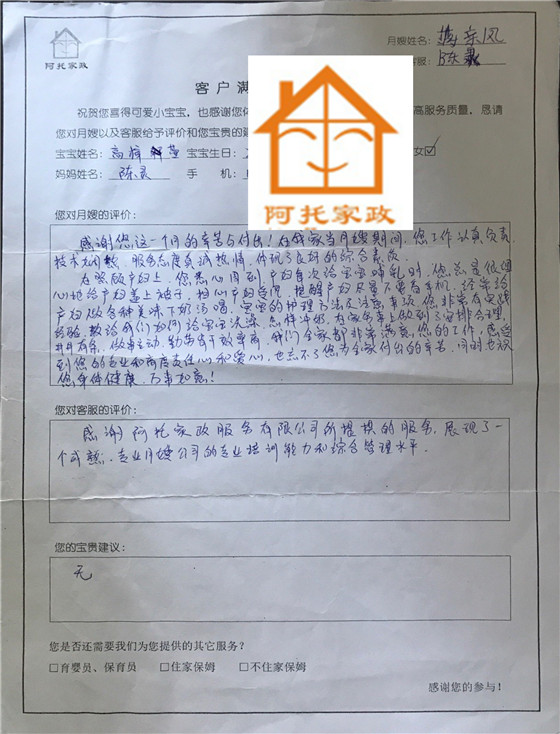 阿托家政
月嫂姓名：
客户满
阿托家政
祝贺您喜得可爱小宝宝，也感谢您
高服务质量，恳请
您对月嫂以及客服给予评价和您宝贵的建
宝宝姓名：高 宝宝生日：
女☑
妈妈姓名：陈 手 机：
您对月嫂的评价：
感谢您这一个月的辛苦与付出！在我家当月嫂期间，您工作认真负责，
技术娴熟，服务态度真诚热情，体现了良好的综合素质。
在照顾产妇上，您悉心周到，产妇每次给宝宝哺乳时，您总是很细
心地给产妇盖上被子，担心产妇受凉，提醒产妇尽量不要看手机，经常给
产妇做各种美味下奶汤喝，宝宝的护理方法及注意事项，您非常有实践
经验，教给我们如何给宝宝洗澡，怎样冲奶，在家务事上做到了安排合理，
井井有条，做事主动，勤劳肯干效率高，我们全家都非常满意您的工作，感受
到您的专业和高度责任心和爱心，也忘不了您为全家付出的辛苦，同时也祝
您身体健康，万事如意！
您对客服的评价：
感谢阿托家政服务有限公司所提供的服务，展现了一
个成熟、专业月嫂公司的专业培训能力和综合管理水平。
您的宝贵建议：
无
您是否还需要我们为您提供的其它服务？
□育婴员、保育员 □住家保姆 □不住家保姆
感谢您的参与！